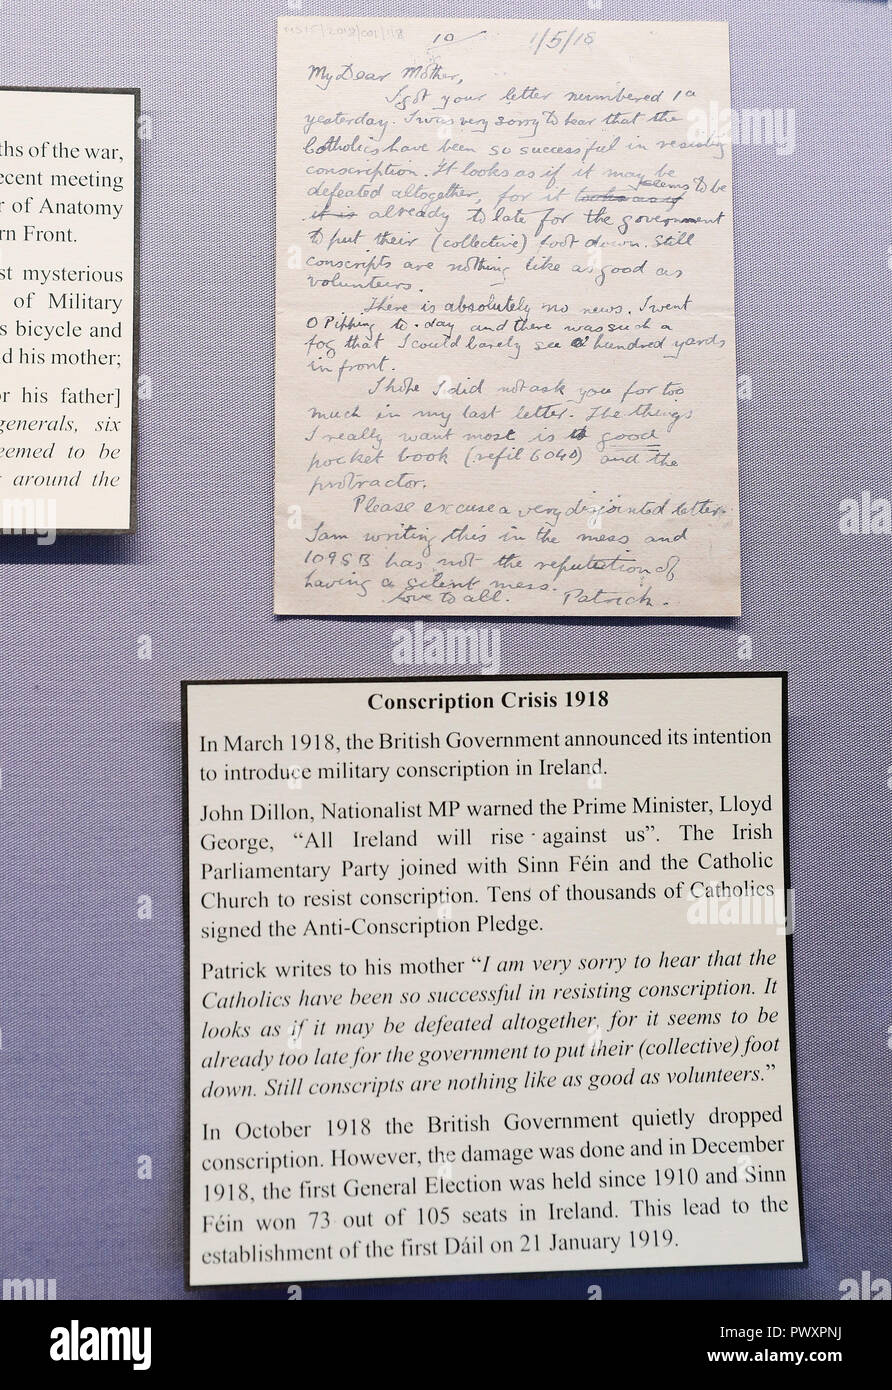 MS1F/2018/001/1/8
10
1/5/18
My Dear Mother,
I got your letter numbered 1a
yesterday. I was very sorry to hear that the
Catholics have been so successful in resisting
conscription. It looks as if it may be
defeated altogether, for it looks as if seems to be
it is already to late for the government
to put their (collective) foot down. Still
conscripts are nothing like as good as
volunteers.
There is absolutely no news. I went
O Pipping to-day and there was such a
fog that I could barely see a hundred yards
in front.
I hope I did not ask you for too
much in my last letter. The things
I really want most is a good
pocket book (refil 6040) and the
protractor.
Please excuse a very disjointed letter.
I am writing this in the mess and
109SB has not the reputation of
having a silent mess.
Love to all. Patrick.
ths of the war,
ecent meeting
r of Anatomy
rn Front.
st mysterious
of Military
s bicycle and
d his mother;
or his father]
generals, six
eemed to be
around the
Conscription Crisis 1918
In March 1918, the British Government announced its intention
to introduce military conscription in Ireland.
John Dillon, Nationalist MP warned the Prime Minister, Lloyd
George, “All Ireland will rise against us”. The Irish
Parliamentary Party joined with Sinn Féin and the Catholic
Church to resist conscription. Tens of thousands of Catholics
signed the Anti-Conscription Pledge.
Patrick writes to his mother “I am very sorry to hear that the
Catholics have been so successful in resisting conscription. It
looks as if it may be defeated altogether, for it seems to be
already too late for the government to put their (collective) foot
down. Still conscripts are nothing like as good as volunteers.”
In October 1918 the British Government quietly dropped
conscription. However, the damage was done and in December
1918, the first General Election was held since 1910 and Sinn
Féin won 73 out of 105 seats in Ireland. This lead to the
establishment of the first Dáil on 21 January 1919.
alamy
Image ID: PWXPNJ
www.alamy.com